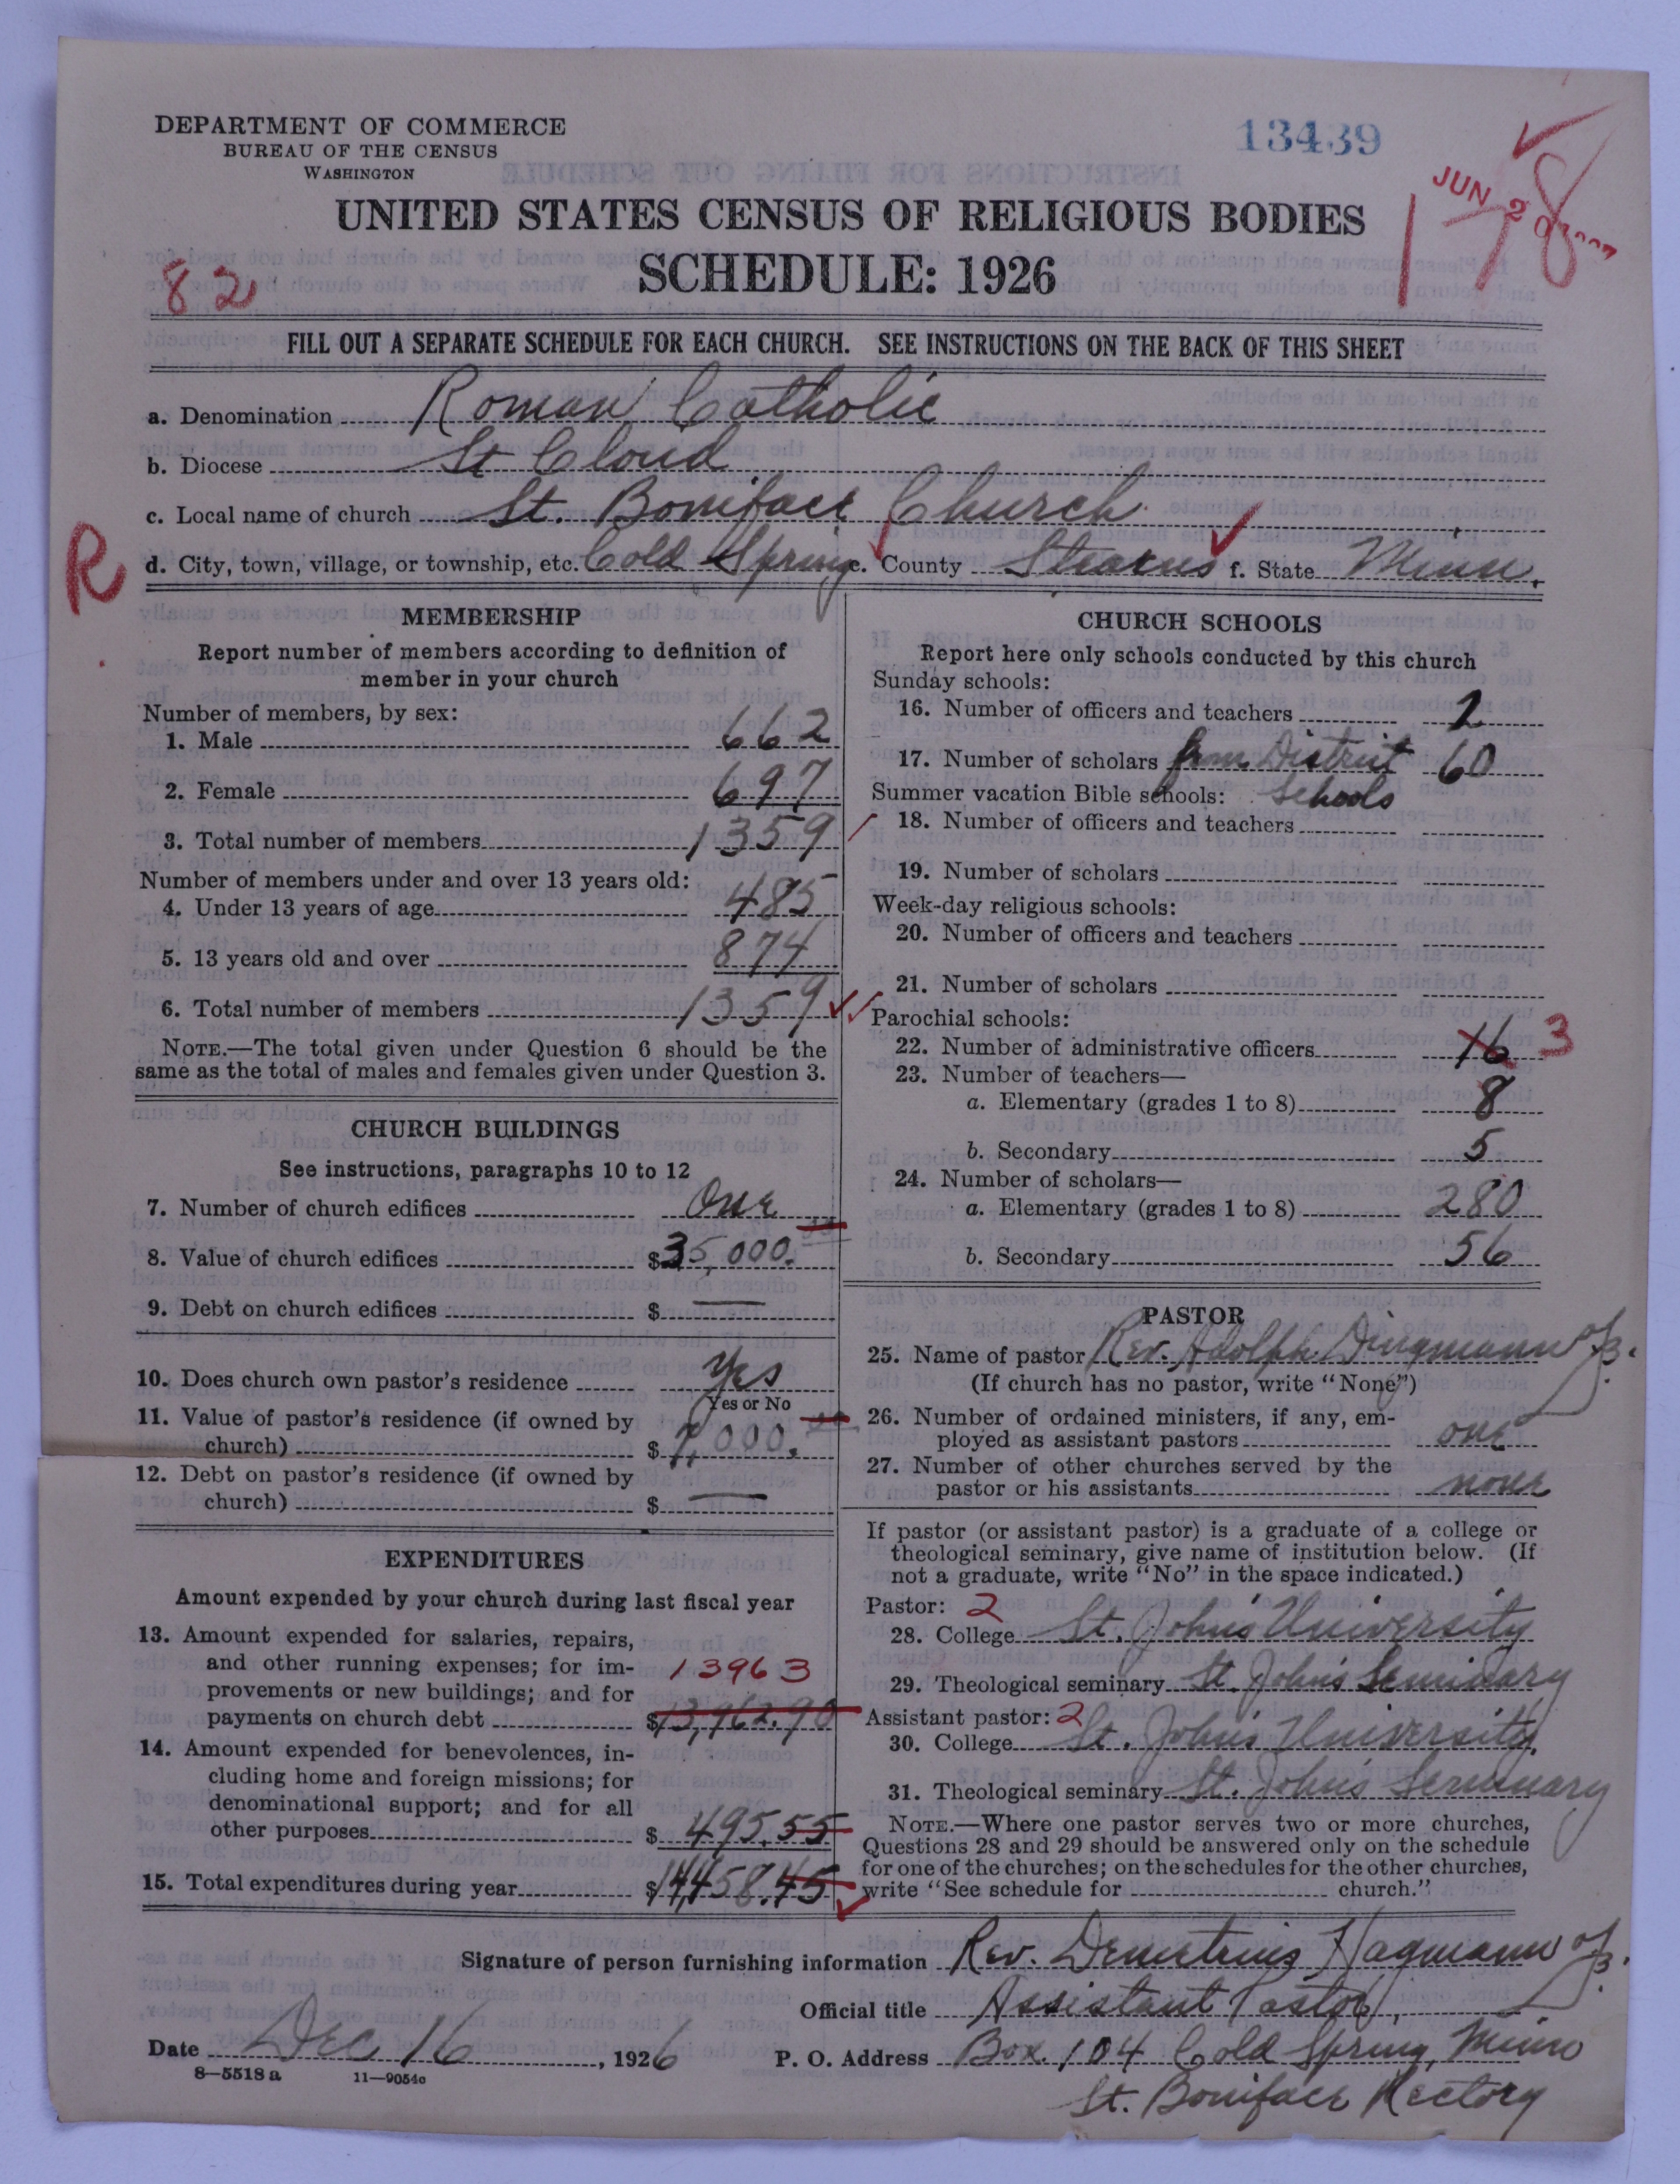 DEPARTMENT OF COMMERCE
BUREAU OF THE CENSUS
WASHINGTON
13439
JUN 20
178
UNITED STATES CENSUS OF RELIGIOUS BODIES
SCHEDULE: 1926
82
FILL OUT A SEPARATE SCHEDULE FOR EACH CHURCH. SEE INSTRUCTIONS ON THE BACK OF THIS SHEET
a. Denomination Roman Catholic
b. Diocese St Cloud
c. Local name of church St. Boniface Church
R
d. City, town, village, or township, etc. Cold Spring e. County Stearns f. State Minn.
MEMBERSHIP
Report number of members according to definition of
member in your church
Number of members, by sex:
1. Male 662
2. Female 697
3. Total number of members 1359
Number of members under and over 13 years old:
4. Under 13 years of age 485
5. 13 years old and over 874
6. Total number of members 1359
NOTE.—The total given under Question 6 should be the
same as the total of males and females given under Question 3.
CHURCH BUILDINGS
See instructions, paragraphs 10 to 12
7. Number of church edifices One
8. Value of church edifices $35,000.
9. Debt on church edifices $ —
10. Does church own pastor's residence Yes
Yes or No
11. Value of pastor's residence (if owned by
church) $7,000.
12. Debt on pastor's residence (if owned by
church) $ —
EXPENDITURES
Amount expended by your church during last fiscal year
13. Amount expended for salaries, repairs,
and other running expenses; for im-
provements or new buildings; and for
13963
payments on church debt $13,962.90
14. Amount expended for benevolences, in-
cluding home and foreign missions; for
denominational support; and for all
other purposes $495.55
15. Total expenditures during year $14458.45
CHURCH SCHOOLS
Report here only schools conducted by this church
Sunday schools:
16. Number of officers and teachers 2
17. Number of scholars from District 60
Summer vacation Bible schools: Schools
18. Number of officers and teachers
19. Number of scholars
Week-day religious schools:
20. Number of officers and teachers
21. Number of scholars
Parochial schools:
22. Number of administrative officers 16 3
23. Number of teachers—
a. Elementary (grades 1 to 8) 8
b. Secondary 5
24. Number of scholars—
a. Elementary (grades 1 to 8) 280
b. Secondary 56
PASTOR
25. Name of pastor Rev. Adolph Dingmann
(If church has no pastor, write "None")
26. Number of ordained ministers, if any, em-
ployed as assistant pastors one
27. Number of other churches served by the
pastor or his assistants none
If pastor (or assistant pastor) is a graduate of a college or
theological seminary, give name of institution below. (If
not a graduate, write "No" in the space indicated.)
Pastor: 2
28. College St. John's University
29. Theological seminary St. John's Seminary
Assistant pastor: 2
30. College St. John's University
31. Theological seminary St. John's Seminary
NOTE.—Where one pastor serves two or more churches,
Questions 28 and 29 should be answered only on the schedule
for one of the churches; on the schedules for the other churches,
write "See schedule for church."
Signature of person furnishing information Rev. Demetrius Hagmann
Official title Assistant Pastor,
Date Dec 16, 1926
P. O. Address Box 104 Cold Spring, Minn
St. Boniface Rectory
8—5518 a 11—9054c